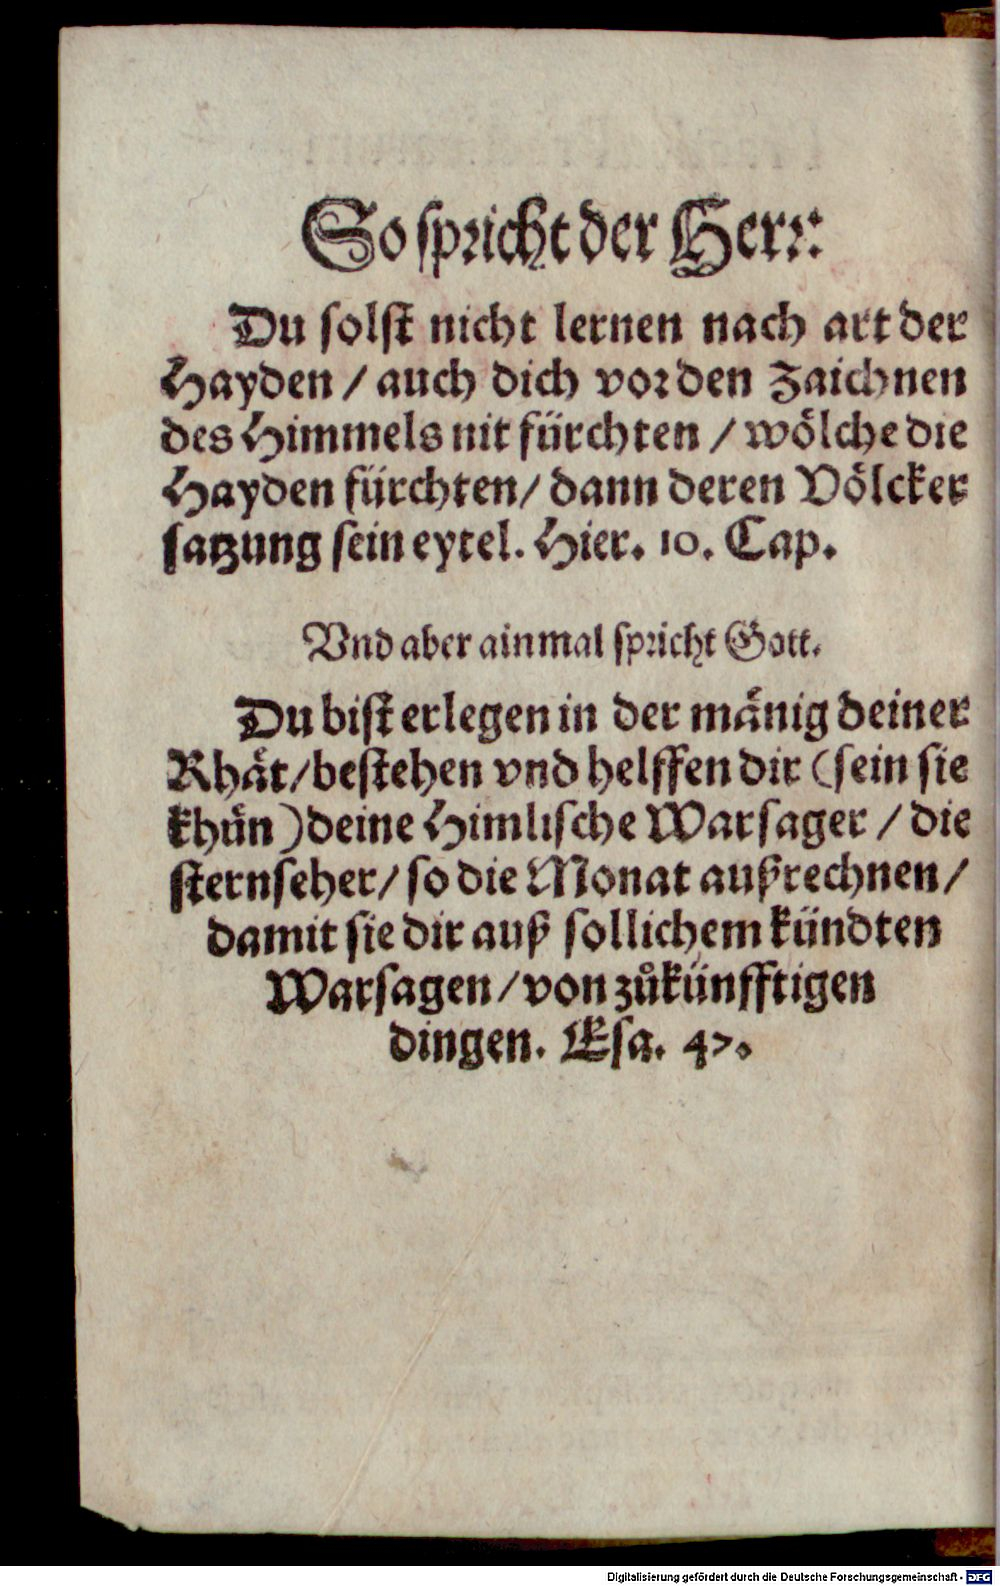 So spricht der Herr:
Du solst nicht lernen nach art der
Hayden / auch dich vor den Zaichnen
des Himmels nit fürchten / wölche die
Hayden fürchten / dann deren Völcker
satzung sein eytel. Hier. 10. Cap.
Vnd aber ainmal spricht Gott.
Du bist erlegen in der mänig deiner
Rhät / bestehen vnd helffen dir (sein sie
khün) deine Himlische Warsager / die
sternseher / so die Monat außrechnen /
damit sie dir auß sollichem kündten
Warsagen / von zůkünfftigen
dingen. Esa. 47.
Digitalisierung gefördert durch die Deutsche Forschungsgemeinschaft - DFG